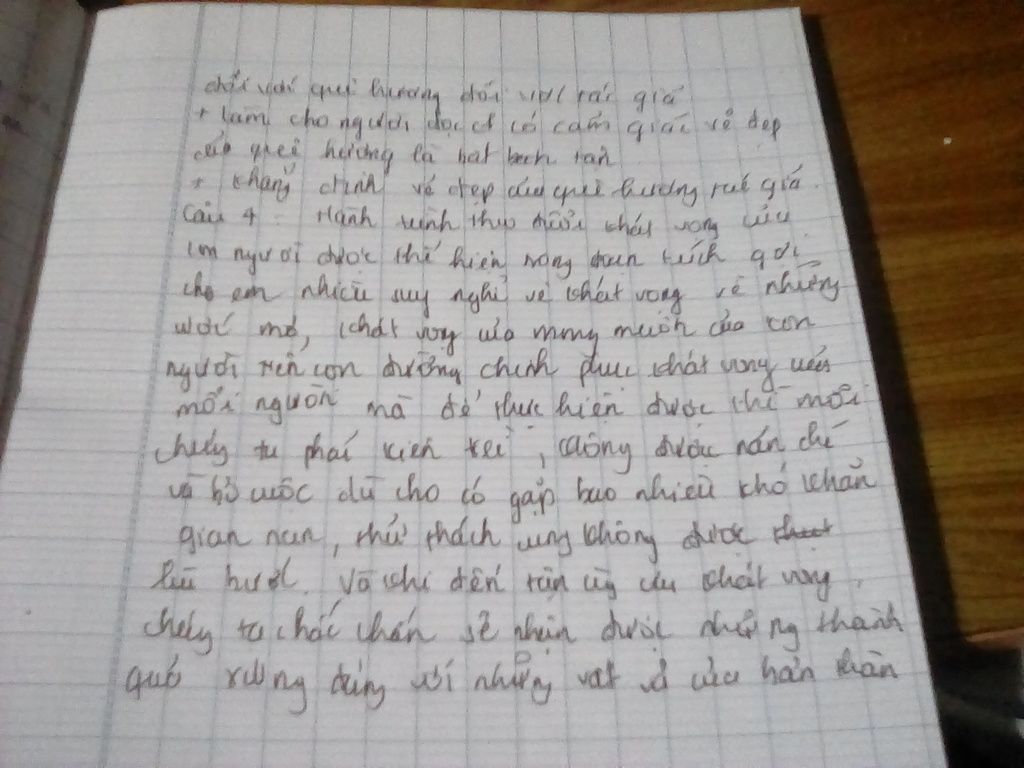 quê hương đối với tác giả
+ làm cho người đọc có cảm giác vẻ đẹp
của quê hương là
+ khẳng định vẻ đẹp của quê hương
Câu 4 Hành trình theo đuổi khát vọng của
con người được thể hiện trong đoạn trích gợi
cho em nhiều suy nghĩ về khát vọng về những
ước mơ, khát vọng của mong muốn của con
người trên con đường chinh phục khát vọng
mỗi người mà để thực hiện được thì mỗi
chúng ta phải kiên trì, không được nản chí
và bỏ cuộc dù cho có gặp bao nhiêu khó khăn
gian nan, thử thách cũng không được
lùi bước. Và khi đến tận cùng của khát vọng
chúng ta chắc chắn sẽ nhận được những thành
quả xứng đáng với những vất vả của bản thân